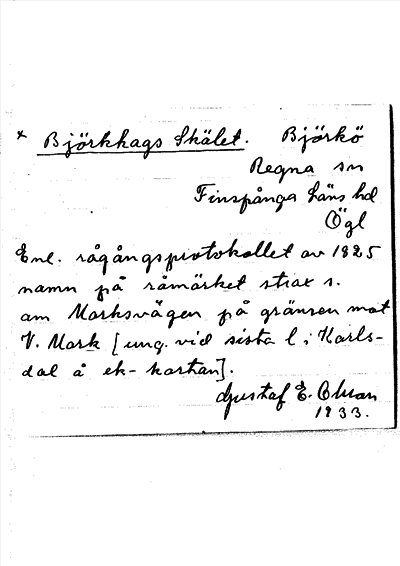 * Björkhags Skälet. Björkö
Regna sn
Finspånga Läns hd
Ögl
Enl. rågångsprotokollet av 1825
namn på råmärket strax s.
om Marksvägen på gränsen mot
V. Mark [ung. vid sista l i Karls-
dal å ek-kartan].
Gustaf E. Ohlson
1933.